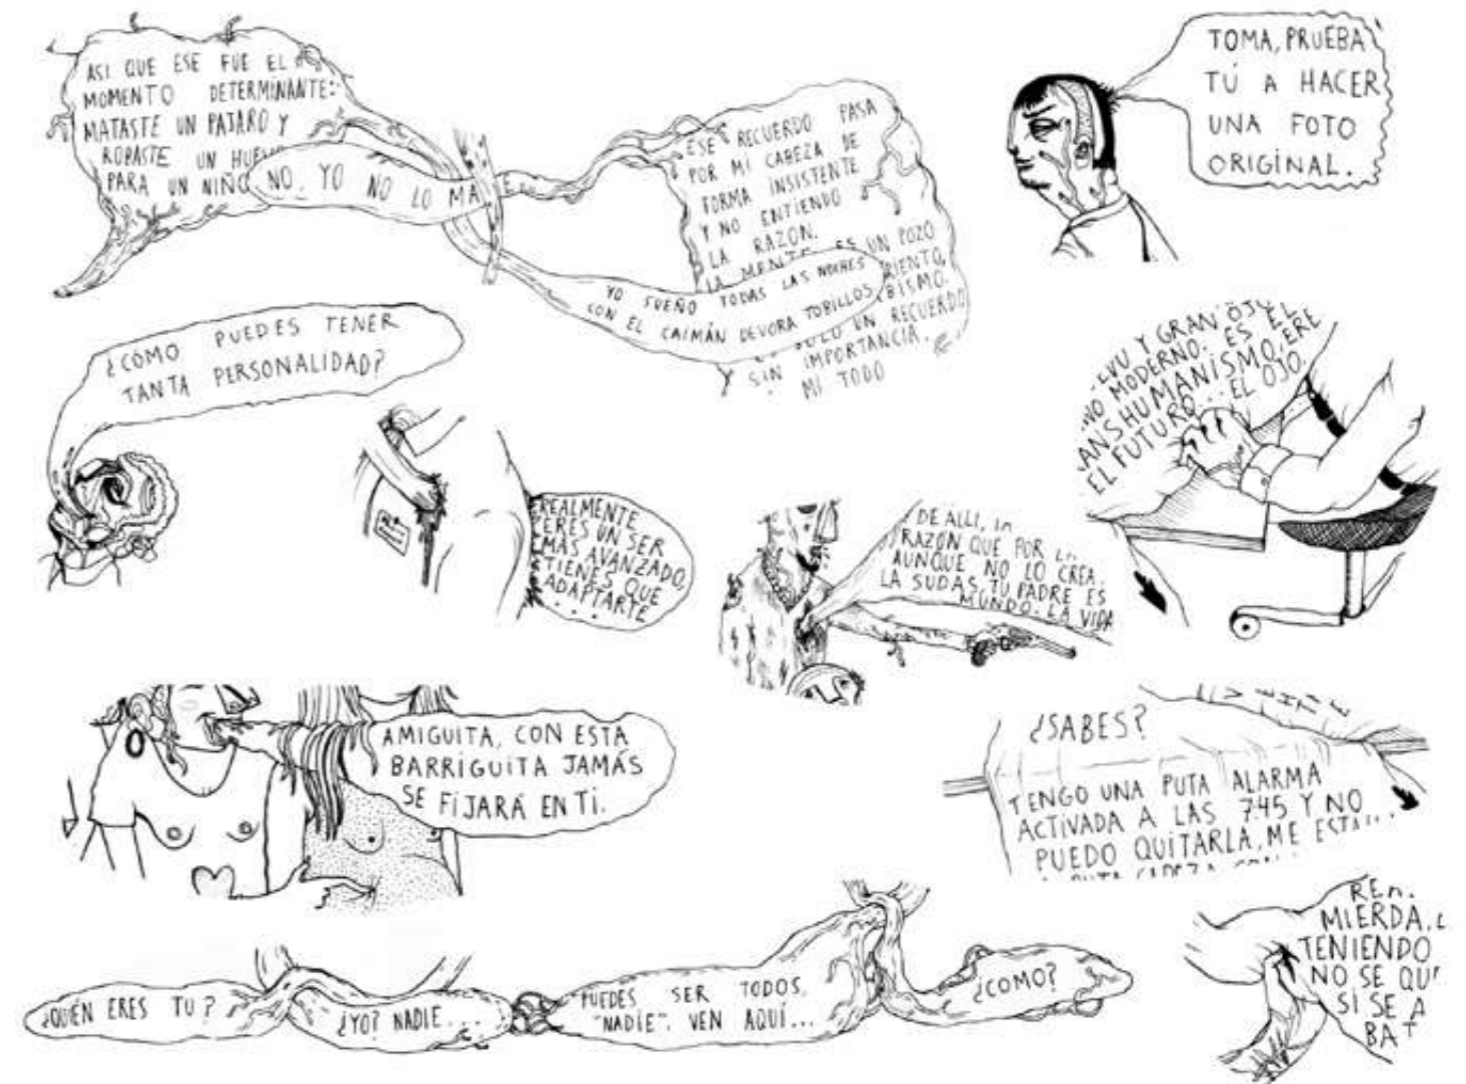 ASI QUE ESE FUE EL
MOMENTO DETERMINANTE:
MATASTE UN PAJARO Y
ROBASTE UN HUEVO
PARA UN NIÑO
NO, YO NO LO MATE
ESE RECUERDO PASA
POR MI CABEZA DE
FORMA INSISTENTE
Y NO ENTIENDO
LA RAZON.
LA MENTE ES UN POZO
YO SUEÑO TODAS LAS NOCHES
CON EL CAIMÁN DEVORA TOBILLOS
SOLO UN RECUERDO
SIN IMPORTANCIA.
MI TODO
TOMA, PRUEBA
TÚ A HACER
UNA FOTO
ORIGINAL.
¿CÓMO PUEDES TENER
TANTA PERSONALIDAD?
REALMENTE
ERES UN SER
MÁS AVANZADO,
TIENES QUE
ADAPTARTE
...
DE ALLI,
RAZÓN QUE POR
AUNQUE NO LO CREA
LA SUDAS, TU PADRE ES
MUNDO. LA VIDA
Y GRAN OJO
NO MODERNO. ES EL
ANSHUMANISMO, ERE
EL FUTURO... EL OJO.
AMIGUITA, CON ESTA
BARRIGUITA JAMÁS
SE FIJARÁ EN TI.
¿SABES?
TENGO UNA PUTA ALARMA
ACTIVADA A LAS 7.45 Y NO
PUEDO QUITARLA, ME ESTA
PUTA CABEZA
¿QUIÉN ERES TU?
¿YO? NADIE....
PUEDES SER TODOS,
"NADIE". VEN AQUÍ...
¿COMO?
MIERDA,
TENIENDO
NO SE QU
SI SE A
BAT